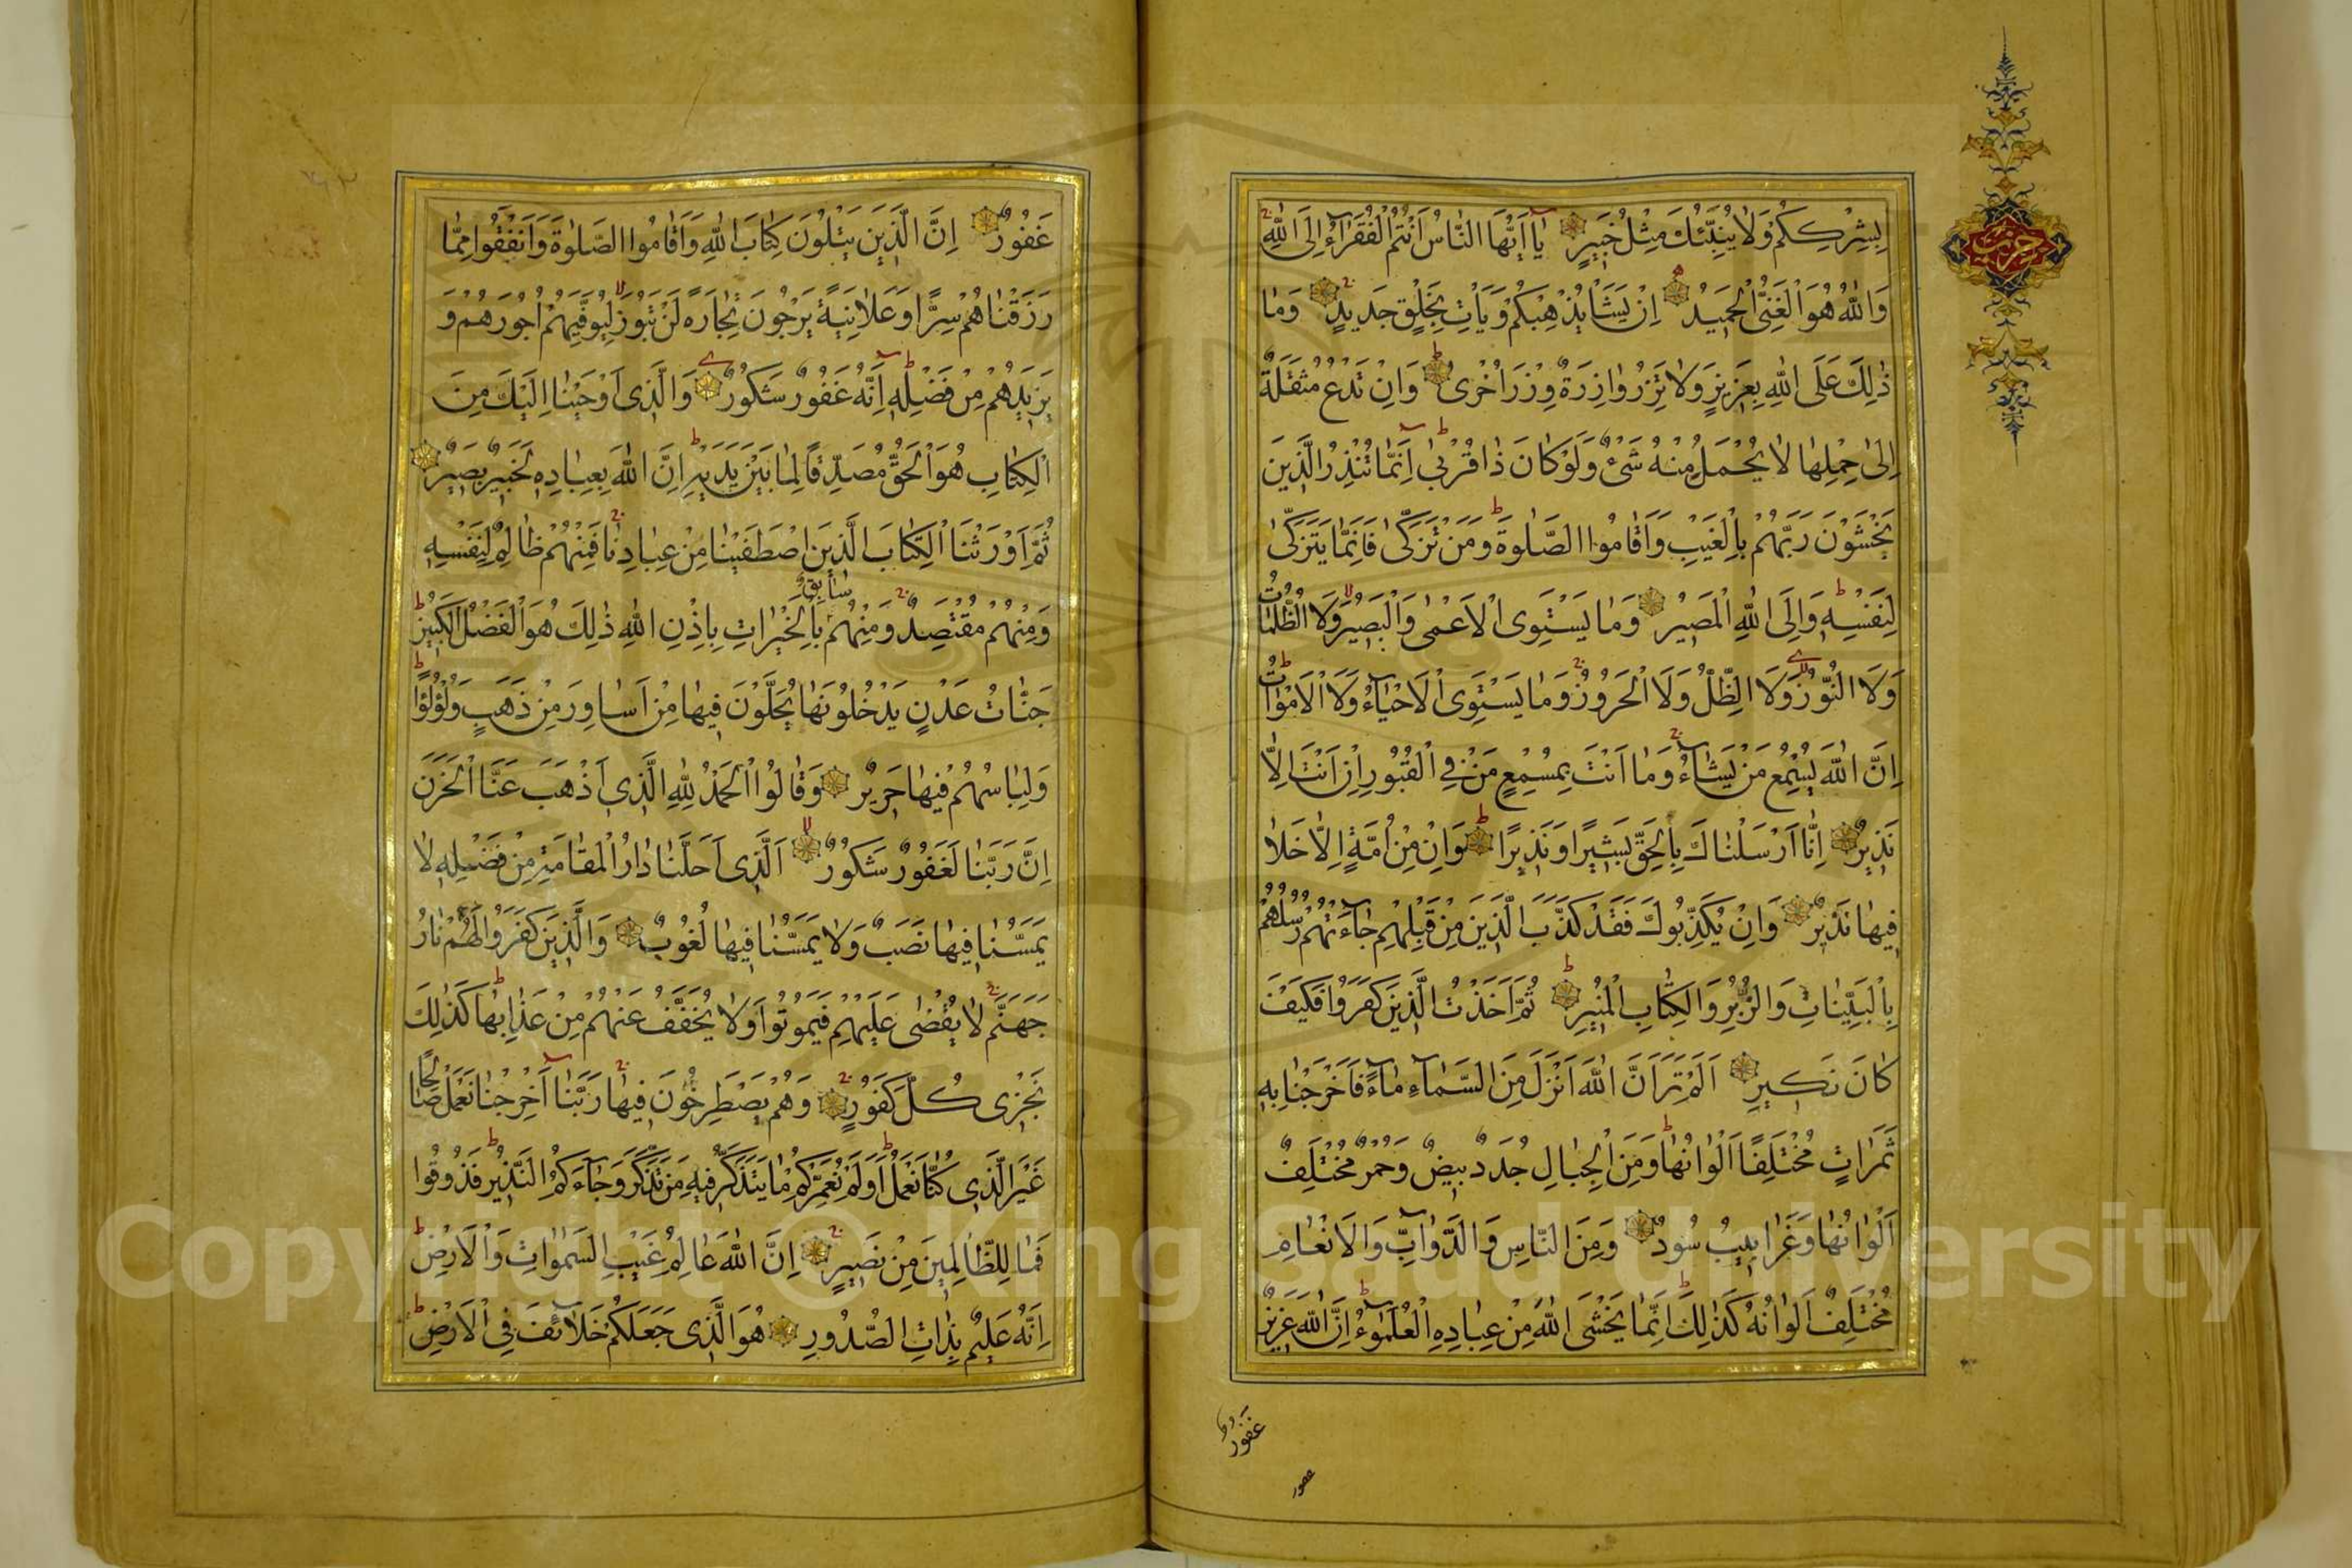 بِشِرْكِكُمْ وَلَا يُنَبِّئُكَ مِثْلُ خَبِيرٍ يَا اَيُّهَا النَّاسُ اَنْتُمُ الْفُقَرَآءُ اِلَى اللّٰهِ
وَاللّٰهُ هُوَ الْغَنِىُّ الْحَمِيدُ اِنْ يَشَأْ يُذْهِبْكُمْ وَيَأْتِ بِخَلْقٍ جَدِيدٍ وَمَا
ذٰلِكَ عَلَى اللّٰهِ بِعَزِيزٍ وَلَا تَزِرُ وَازِرَةٌ وِزْرَ اُخْرٰى وَاِنْ تَدْعُ مُثْقَلَةٌ
اِلٰى حِمْلِهَا لَا يُحْمَلْ مِنْهُ شَىْءٌ وَلَوْ كَانَ ذَا قُرْبٰى اِنَّمَا تُنْذِرُ الَّذِينَ
يَخْشَوْنَ رَبَّهُمْ بِالْغَيْبِ وَاَقَامُوا الصَّلٰوةَ وَمَنْ تَزَكّٰى فَاِنَّمَا يَتَزَكّٰى
لِنَفْسِهِ وَاِلَى اللّٰهِ الْمَصِيرُ وَمَا يَسْتَوِى الْاَعْمٰى وَالْبَصِيرُ وَلَا الظُّلُمَاتُ
وَلَا النُّورُ وَلَا الظِّلُّ وَلَا الْحَرُورُ وَمَا يَسْتَوِى الْاَحْيَآءُ وَلَا الْاَمْوَاتُ
اِنَّ اللّٰهَ يُسْمِعُ مَنْ يَشَآءُ وَمَا اَنْتَ بِمُسْمِعٍ مَنْ فِى الْقُبُورِ اِنْ اَنْتَ اِلَّا
نَذِيرٌ اِنَّا اَرْسَلْنَاكَ بِالْحَقِّ بَشِيرًا وَنَذِيرًا وَاِنْ مِنْ اُمَّةٍ اِلَّا خَلَا
فِيهَا نَذِيرٌ وَاِنْ يُكَذِّبُوكَ فَقَدْ كَذَّبَ الَّذِينَ مِنْ قَبْلِهِمْ جَآءَتْهُمْ رُسُلُهُمْ
بِالْبَيِّنَاتِ وَالزُّبُرِ وَالْكِتَابِ الْمُنِيرِ ثُمَّ اَخَذْتُ الَّذِينَ كَفَرُوا فَكَيْفَ
كَانَ نَكِيرِ اَلَمْ تَرَ اَنَّ اللّٰهَ اَنْزَلَ مِنَ السَّمَآءِ مَآءً فَاَخْرَجْنَا بِهِ
ثَمَرَاتٍ مُخْتَلِفًا اَلْوَانُهَا وَمِنَ الْجِبَالِ جُدَدٌ بِيضٌ وَحُمْرٌ مُخْتَلِفٌ
اَلْوَانُهَا وَغَرَابِيبُ سُودٌ وَمِنَ النَّاسِ وَالدَّوَآبِّ وَالْاَنْعَامِ
مُخْتَلِفٌ اَلْوَانُهُ كَذٰلِكَ اِنَّمَا يَخْشَى اللّٰهَ مِنْ عِبَادِهِ الْعُلَمٰٓؤُ اِنَّ اللّٰهَ عَزِيزٌ
غَفُورٌ
غَفُورٌ اِنَّ الَّذِينَ يَتْلُونَ كِتَابَ اللّٰهِ وَاَقَامُوا الصَّلٰوةَ وَاَنْفَقُوا مِمَّا
رَزَقْنَاهُمْ سِرًّا وَعَلَانِيَةً يَرْجُونَ تِجَارَةً لَنْ تَبُورَ لِيُوَفِّيَهُمْ اُجُورَهُمْ وَ
يَزِيدَهُمْ مِنْ فَضْلِهِ اِنَّهُ غَفُورٌ شَكُورٌ وَالَّذِى اَوْحَيْنَا اِلَيْكَ مِنَ
الْكِتَابِ هُوَ الْحَقُّ مُصَدِّقًا لِمَا بَيْنَ يَدَيْهِ اِنَّ اللّٰهَ بِعِبَادِهِ لَخَبِيرٌ بَصِيرٌ
ثُمَّ اَوْرَثْنَا الْكِتَابَ الَّذِينَ اصْطَفَيْنَا مِنْ عِبَادِنَا فَمِنْهُمْ ظَالِمٌ لِنَفْسِهِ
وَمِنْهُمْ مُقْتَصِدٌ وَمِنْهُمْ سَابِقٌ بِالْخَيْرَاتِ بِاِذْنِ اللّٰهِ ذٰلِكَ هُوَ الْفَضْلُ الْكَبِيرُ
جَنَّاتُ عَدْنٍ يَدْخُلُونَهَا يُحَلَّوْنَ فِيهَا مِنْ اَسَاوِرَ مِنْ ذَهَبٍ وَلُؤْلُؤًا
وَلِبَاسُهُمْ فِيهَا حَرِيرٌ وَقَالُوا الْحَمْدُ لِلّٰهِ الَّذِى اَذْهَبَ عَنَّا الْحَزَنَ
اِنَّ رَبَّنَا لَغَفُورٌ شَكُورٌ اَلَّذِى اَحَلَّنَا دَارَ الْمُقَامَةِ مِنْ فَضْلِهِ لَا
يَمَسُّنَا فِيهَا نَصَبٌ وَلَا يَمَسُّنَا فِيهَا لُغُوبٌ وَالَّذِينَ كَفَرُوا لَهُمْ نَارُ
جَهَنَّمَ لَا يُقْضٰى عَلَيْهِمْ فَيَمُوتُوا وَلَا يُخَفَّفُ عَنْهُمْ مِنْ عَذَابِهَا كَذٰلِكَ
نَجْزِى كُلَّ كَفُورٍ وَهُمْ يَصْطَرِخُونَ فِيهَا رَبَّنَا اَخْرِجْنَا نَعْمَلْ صَالِحًا
غَيْرَ الَّذِى كُنَّا نَعْمَلُ اَوَلَمْ نُعَمِّرْكُمْ مَا يَتَذَكَّرُ فِيهِ مَنْ تَذَكَّرَ وَجَآءَكُمُ النَّذِيرُ فَذُوقُوا
فَمَا لِلظَّالِمِينَ مِنْ نَصِيرٍ اِنَّ اللّٰهَ عَالِمُ غَيْبِ السَّمٰوَاتِ وَالْاَرْضِ
اِنَّهُ عَلِيمٌ بِذَاتِ الصُّدُورِ هُوَ الَّذِى جَعَلَكُمْ خَلَآئِفَ فِى الْاَرْضِ
Copyright © King Saud University